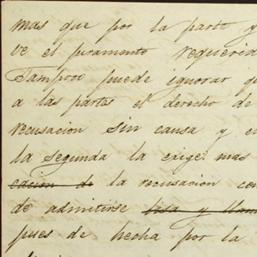 mas que por la parte y
ve el juramento requerid
Tampoco puede ygnorar q
a las partes el derecho de
recusacion sin causa y e
la segunda la exige mas
cacion de la recusacion con
de admitirse lisa y llam
pues de hecha por la